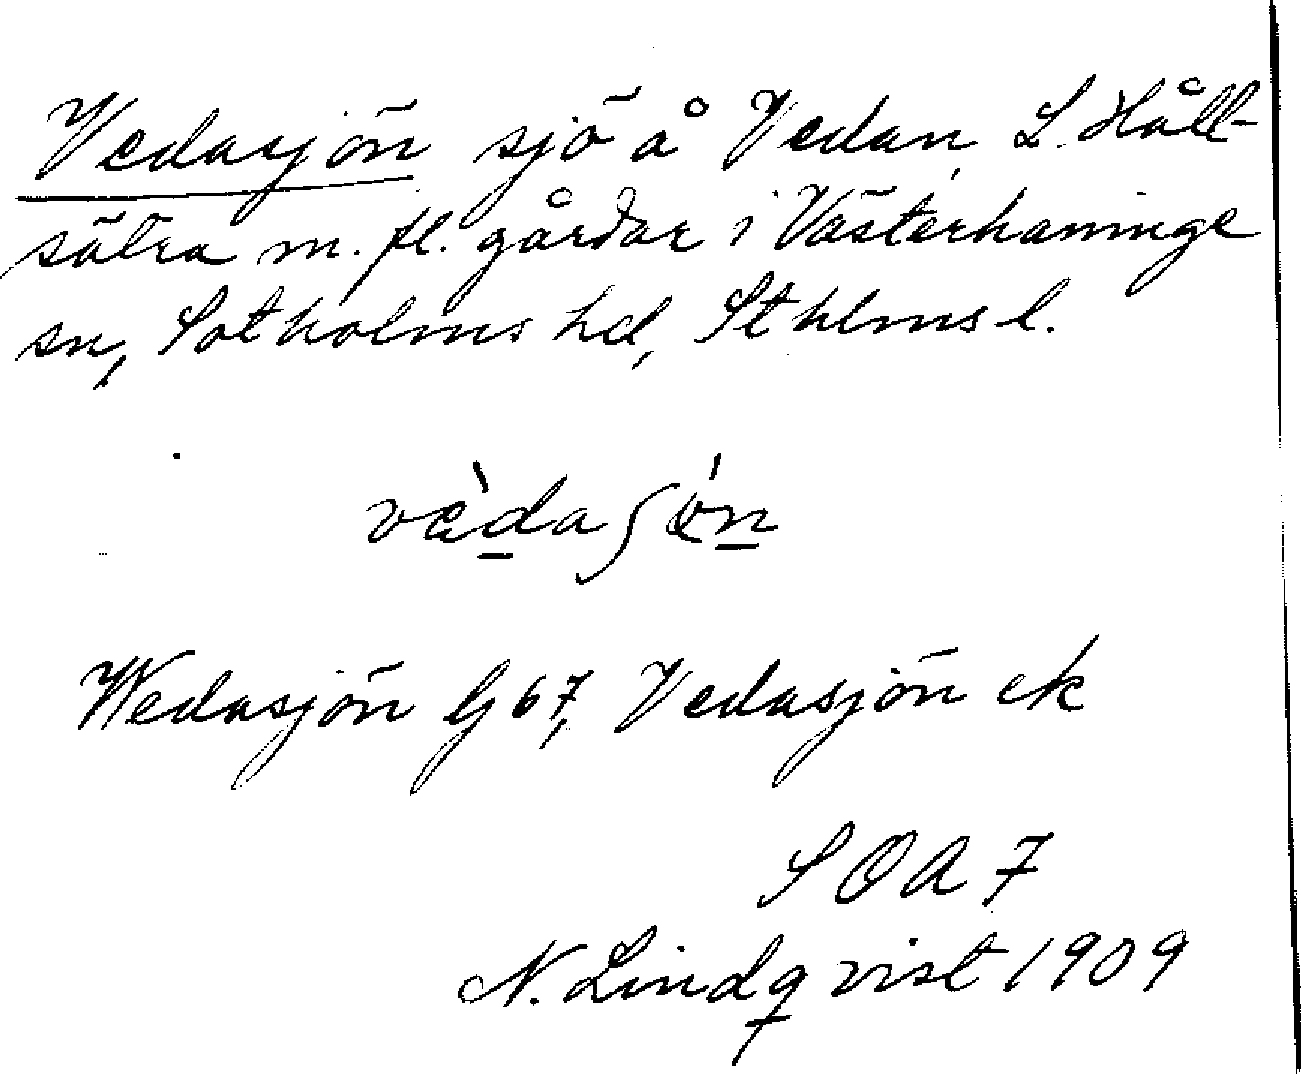 Vedasjön sjö å Vedan, L. Håll-
sätra m. fl. gårdar i Västerhaninge
sn, Sotholms hd, Sthlms l.
vèdaʃøn
Wedasjön Gj 67, Vedasjön ek
SOA 7
N. Lindqvist 1909